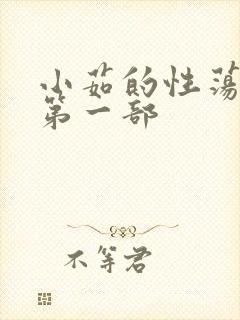 小茹的性荡
第一部
不等君